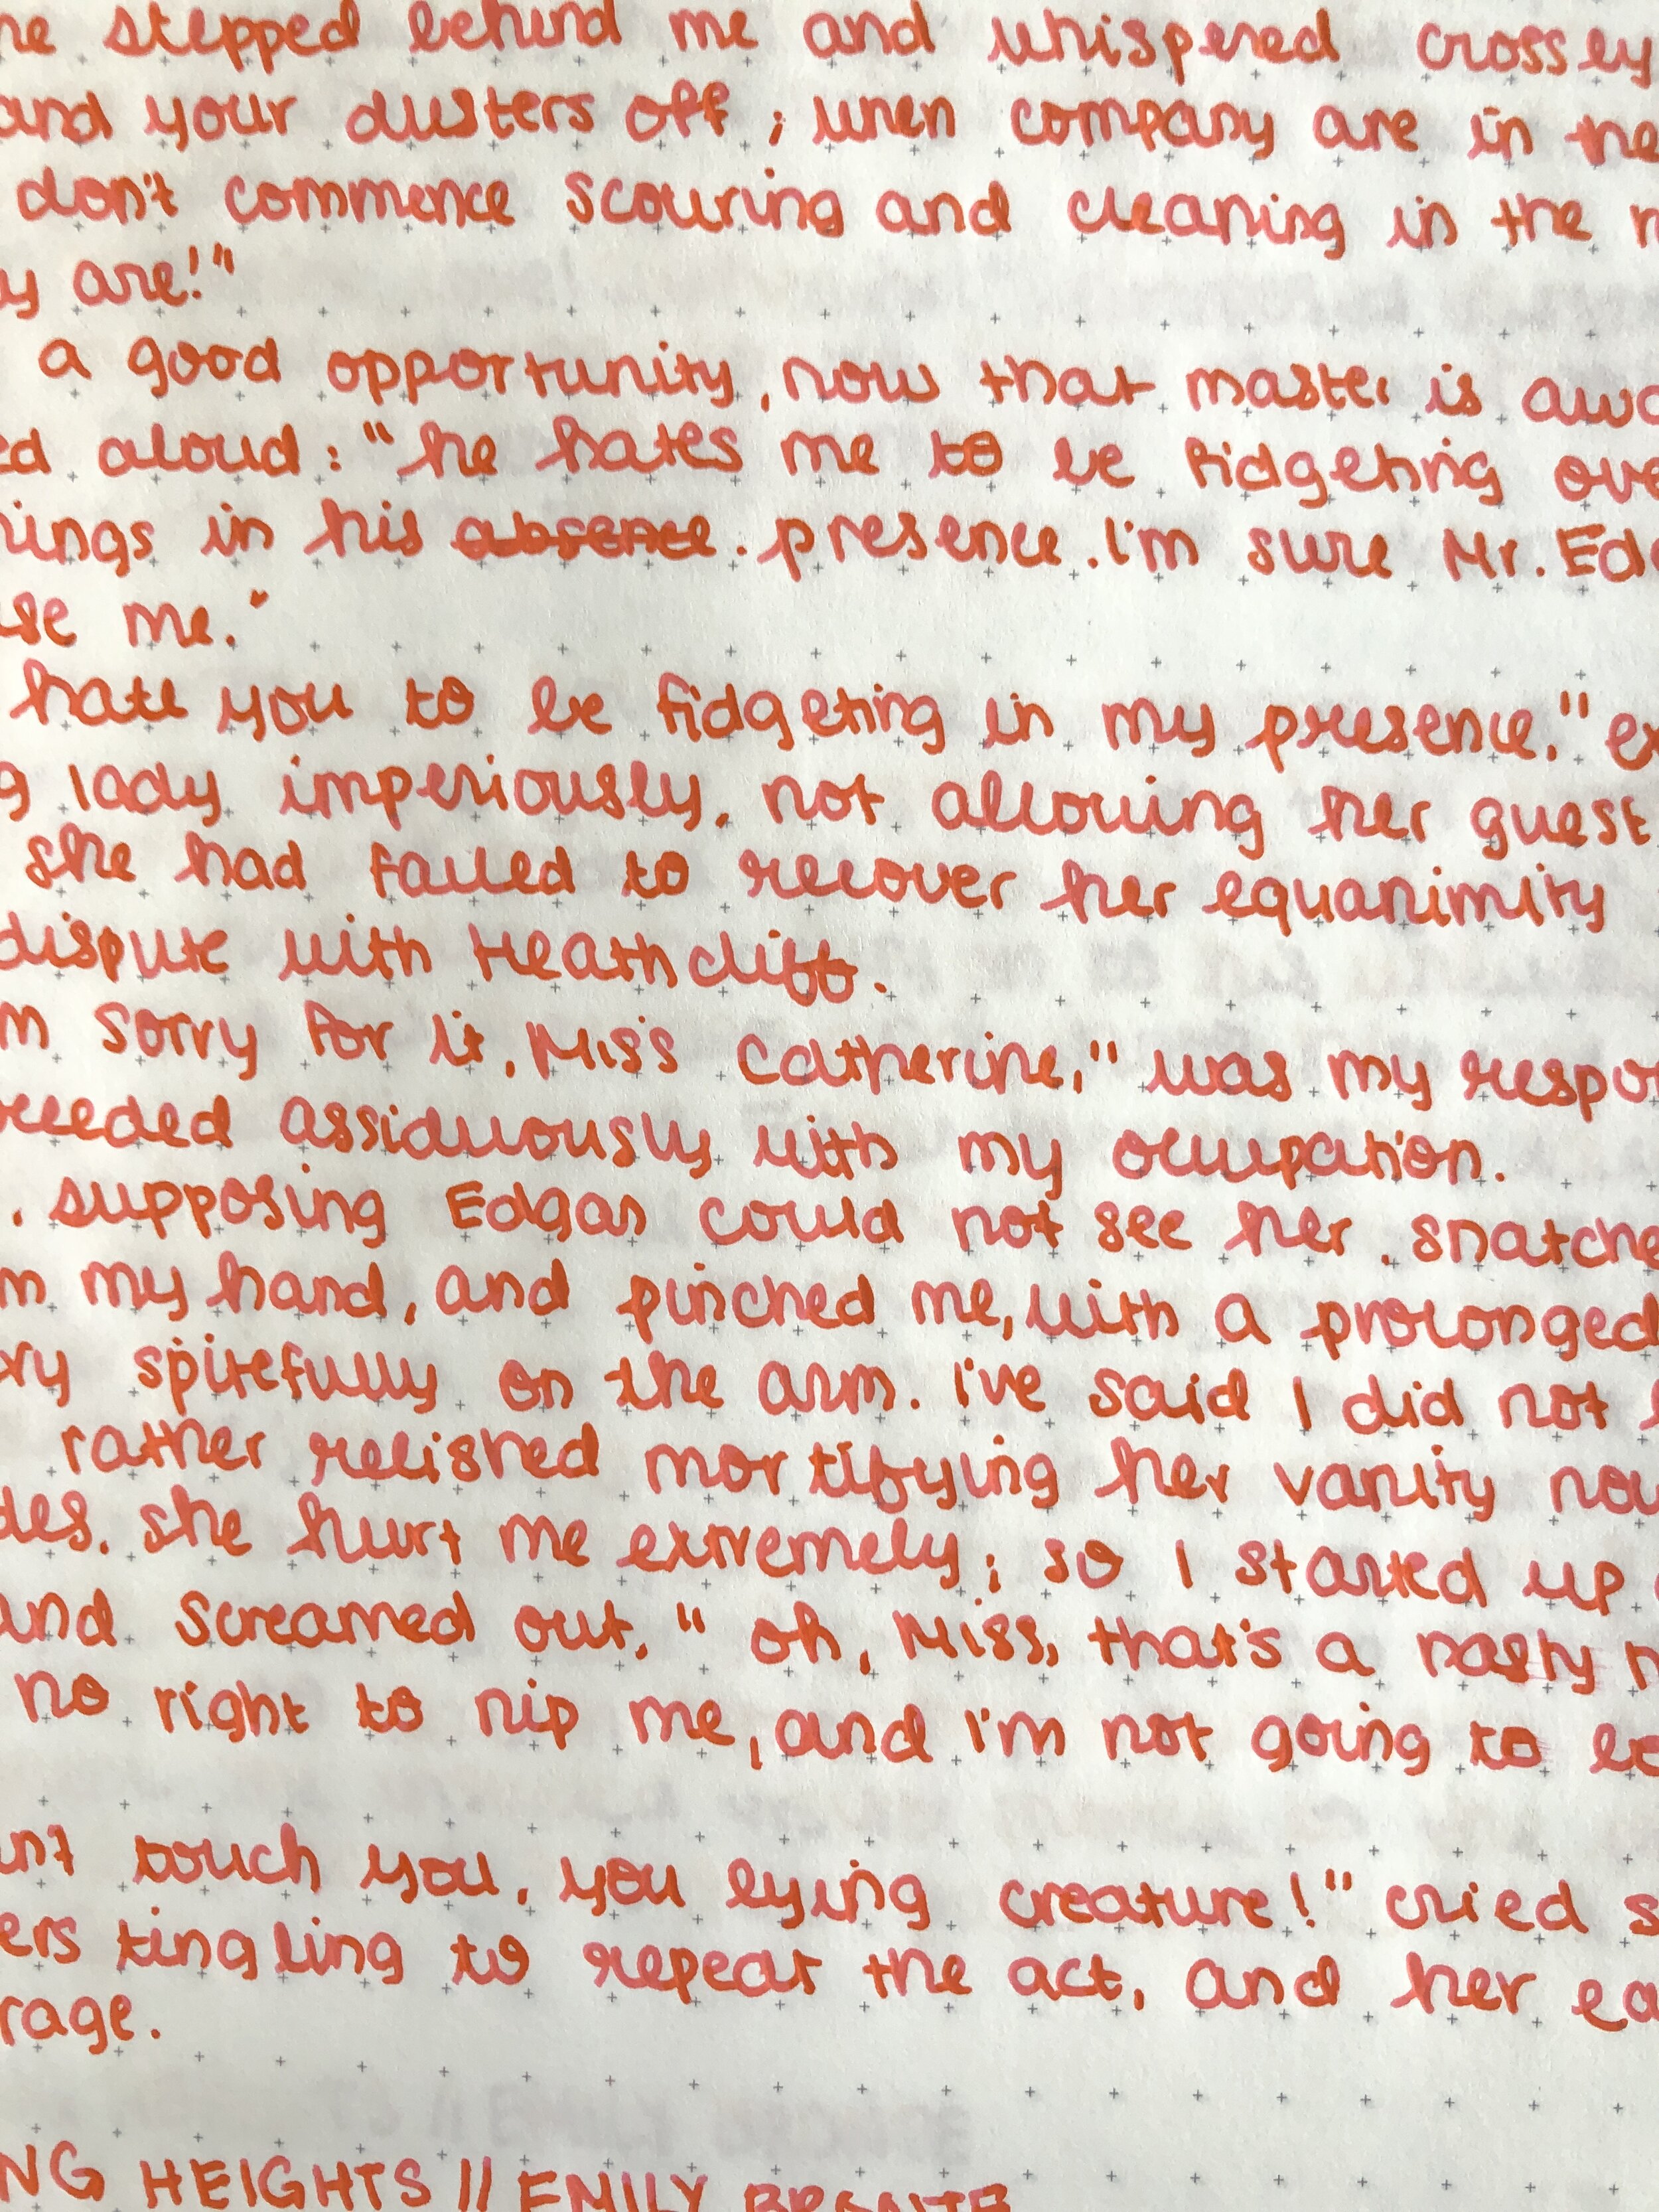 he stepped behind me and whispered crossly
and your dusters off; when company are in the
don't commence scouring and cleaning in the r
y are!"
a good opportunity, now that master is awa
ed aloud: "he hates me to be fidgeting ove
hings in his absence. presence. I'm sure Mr. Edg
use me."
hate you to be fidgeting in my presence." ex
g lady imperiously, not allowing her guest
she had failed to recover her equanimity
dispute with Heathcliff.
m sorry for it, Miss Catherine," was my respon
ceeded assiduously with my occupation.
, supposing Edgar could not see her, snatche
m my hand, and pinched me, with a prolonged
ry spitefully on the arm. I've said I did not l
rather relished mortifying her vanity now
des. she hurt me extremely; so I started up
and screamed out, "oh, Miss, that's a nasty n
no right to nip me, and I'm not going to be
n't touch you, you lying creature!" cried s
ers tingling to repeat the act, and her ea
rage.
NG HEIGHTS // EMILY BRONTE